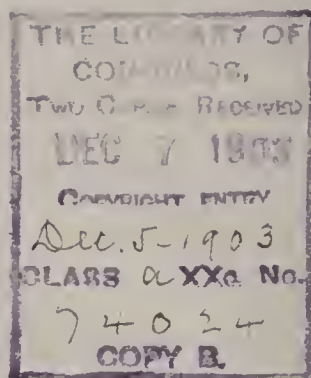 THE LIBRARY OF
CONGRESS,
Two Copies Received
DEC 7 1903
COPYRIGHT ENTRY
Dec. 5-1903
CLASS a XXc. No.
74024
COPY B.